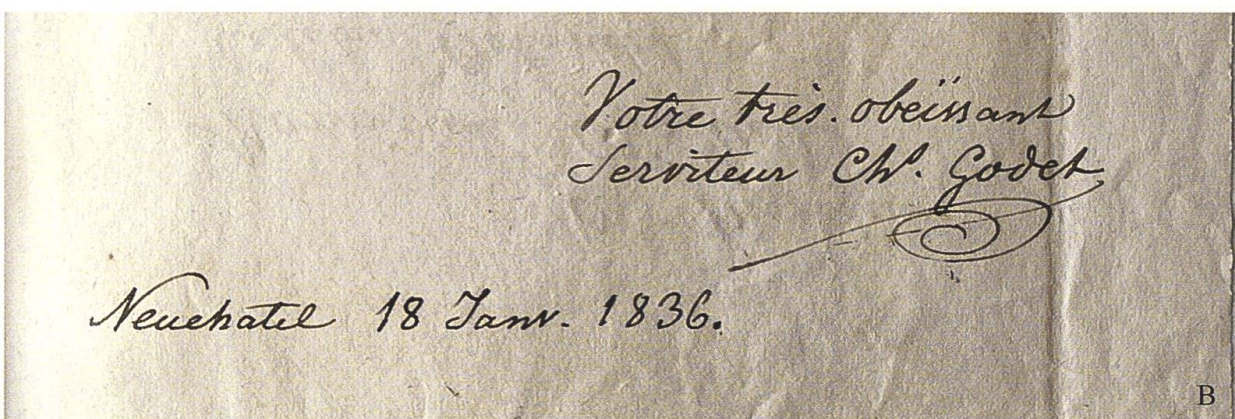 Votre très. obeïssant
Serviteur Chs. Godet
Neuchatel 18 Janv. 1836.
B